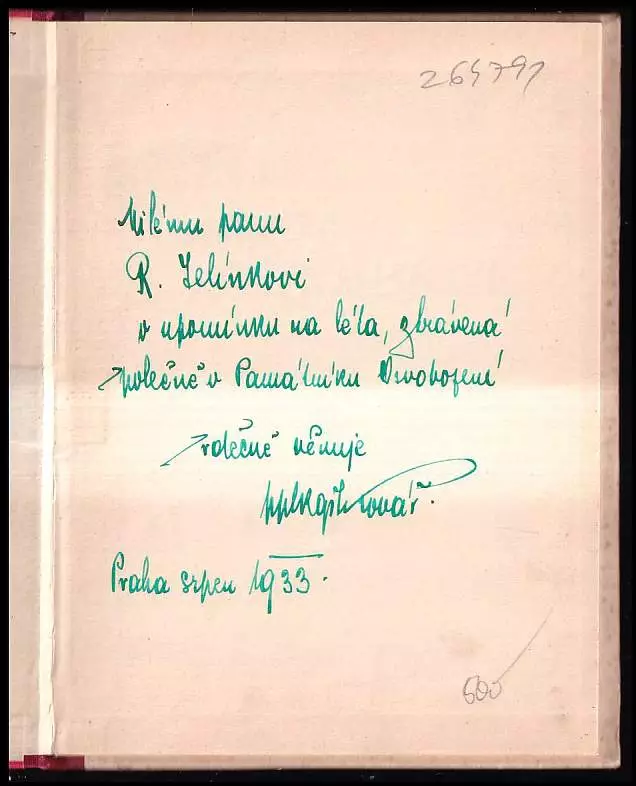 264791
Milému panu
R. Jelínkovi
v upomínku na léta, ztrávená
společně v Památníku Osvobození
srdečně věnuje
pplk
Praha srpen 1933.
600